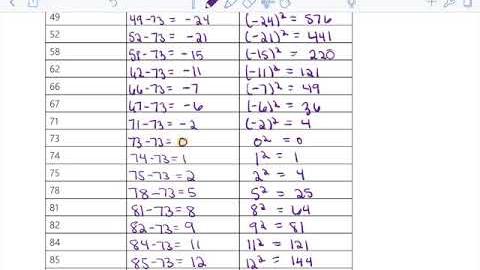 49 49-73 = -24 (-24)² = 576
52 52-73 = -21 (-21)² = 441
58 58-73 = -15 (-15)² = 220
62 62-73 = -11 (-11)² = 121
66 66-73 = -7 (-7)² = 49
67 67-73 = -6 (-6)² = 36
71 71-73 = -2 (-2)² = 4
73 73-73 = 0 0² = 0
74 74-73 = 1 1² = 1
75 75-73 = 2 2² = 4
78 78-73 = 5 5² = 25
81 81-73 = 8 8² = 64
82 82-73 = 9 9² = 81
84 84-73 = 11 11² = 121
85 85-73 = 12 12² = 144